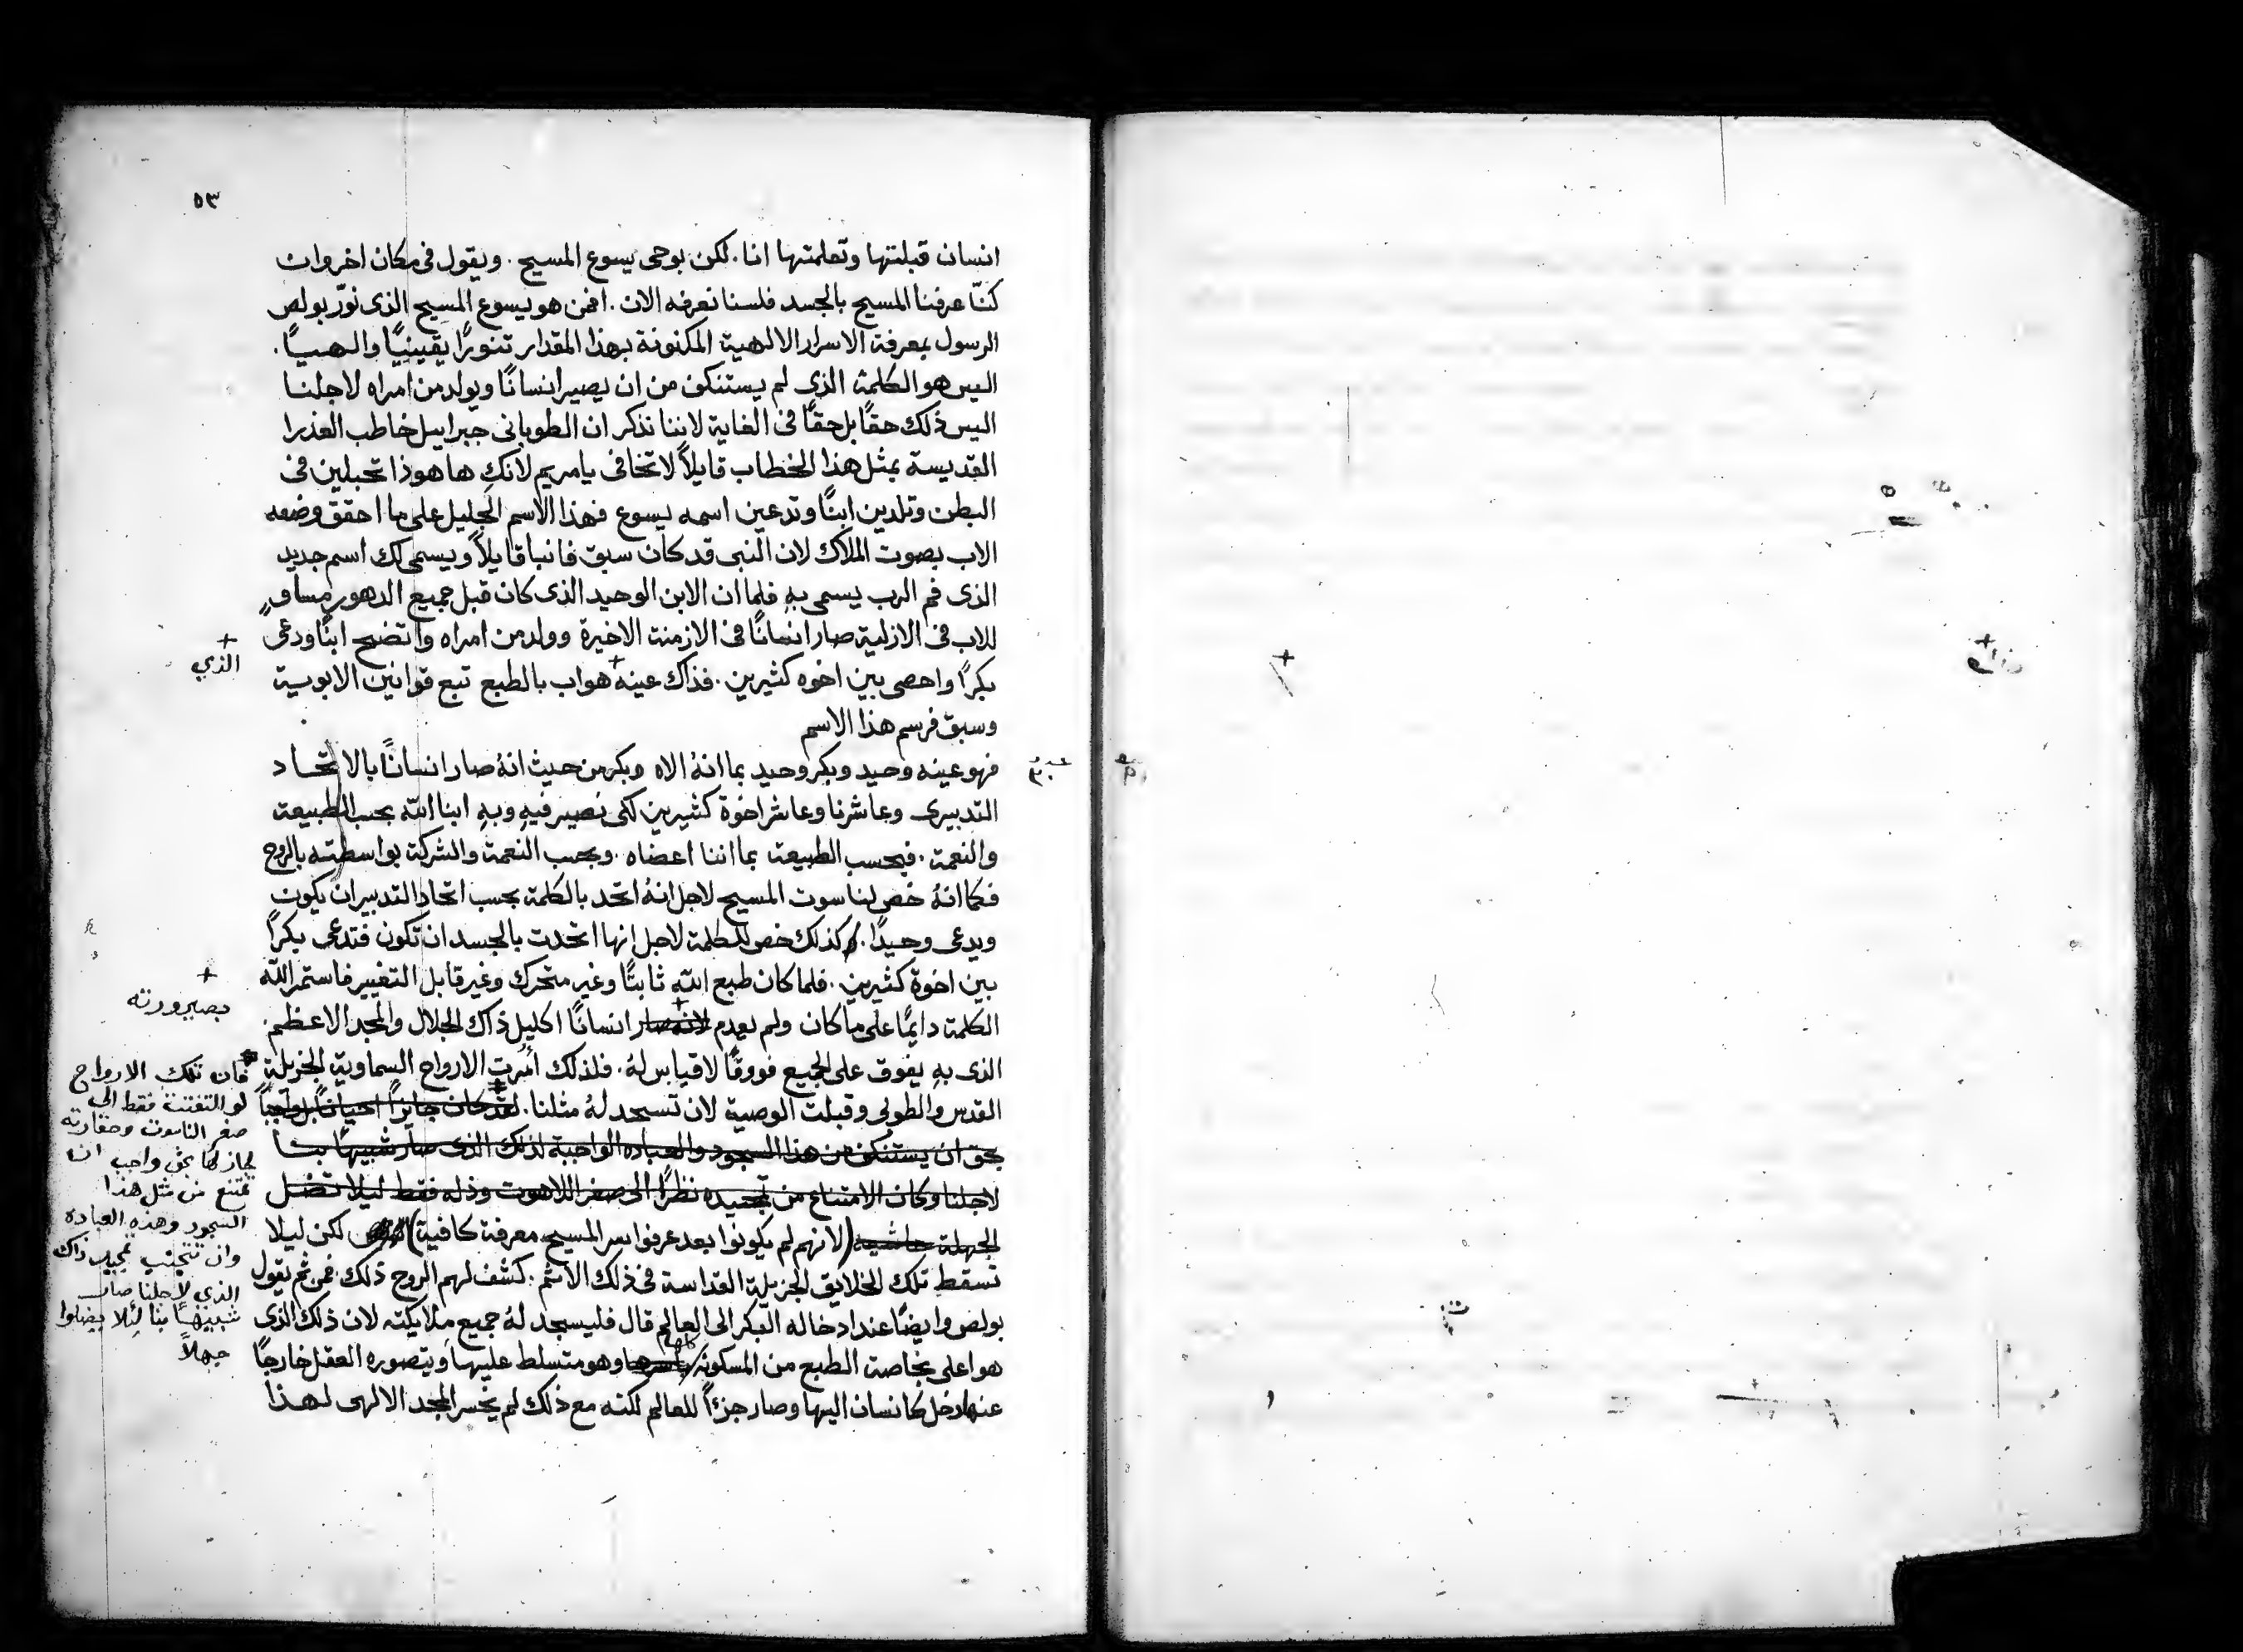 ٥٣
انسان قبلتها وتعلمتها انا. لكن بوحى يسوع المسيح. ويقول فى مكان اخر وان
كنّا عرفنا المسيح بالجسد فلسنا نعرفه الان. افمن هو يسوع المسيح الذى نوّر بولص
الرسول بمعرفة الاسرار الالهية المكنونة بهذا المقدار تنورًا يقينيًا والهيًا.
اليس هو الكلمة الذى لم يستنكف من ان يصير انسانًا ويولد من امراه لاجلنا
اليس ذلك حقًا بل حقًا فى الغاية لاننا نذكر ان الطوبانى جبراييل خاطب العذرا
القديسة بمثل هذا الخطاب قايلاً لا تخافى يا مريم لانكِ ها هوذا تحبلين فى
البطن وتلدين ابنًا وتدعين اسمه يسوع فهذا الاسم الجليل على ما احقق وضعه
الاب بصوت الملاك لان النبى قد كان سبق فانبا قايلاً ويسمى لك اسم جديد
الذى فم الرب يسمى بهِ فلما ان الابن الوحيد الذى كان قبل جميع الدهور مساوٍ
للاب فى الازلية صار انسانًا فى الازمنة الاخيرة وولد من امراه واتضح ابنًا ودعى
بكرًا واحصى بين اخوه كثيرين. فذاك عينه + هو اب بالطبع تبع قوانين الابوية
+
الذي
وسبق فرسم هذا الاسم
فهو عينه وحيد وبكر وحيد بما انهُ الاه وبكر من حيث انهُ صار انسانًا بالاتحاد
التدبيرى وعاشرنا وعاشر اخوة كثيرين لكى نصير فيهِ وبهِ ابنا الله بحسب الطبيعة
والنعمة. فبحسب الطبيعة بما اننا اعضاه. وبحسب النعمة والشركة بواسطته بالروح
فكما انهُ خص لناسوت المسيح لاجل انهُ اتحد بالكلمة بحسب اتحاد التدبير ان يكون
ويدعى وحيدًا. كذلك خص للكلمة لاجل انها اتحدت بالجسد ان تكون فتدعى بكرًا
بين اخوة كثيرين. فلما كان طبع الله ثابتًا وغير متحرك وغير قابل التغيير فاستمر الله
الكلمة دايمًا على ما كان ولم يعدم لانه صار + انسانًا اكليل ذاك الجلال والمجد الاعظم.
+
بصيرورته
الذى بهِ يفوق على الجميع فووقًا لا قياس لهُ. فلذلك أمرت الارواح السماوية الجزيلة
القدس والطوبى وقبلت الوصية لان تسجد لهُ مثلنا. لقد كان جايزًا احيانًا بل واجبًا
بحق ان يستنكف من هذا السجود والعباده الواجبة لذلك الذى صار شبيهًا بنا
لاجلنا وكان الامتناع من تمجيده نظرًا الى صغر اللاهوت وذله فقط ليلا تضل
الجهلة حاشيه (لانهم لم يكونوا بعد عرفوا سر المسيح معرفة كافية) لكن ليلا
تسقط تلك الخلايق الجزيلة القداسة فى ذلك الاثم. كشف لهم الروح ذلك. فمن ثم يقول
بولص وايضًا عند ادخاله البكر الى العالم قال فليسجد لهُ جميع ملايكته لان ذلك الذى
هو اعلى بخاصة الطبع من المسكونه باسرها كلها وهو متسلط عليها ويتصوره العقل خارجًا
عنها دخل كانسان اليها وصار جزءًا للعالم لكنه مع ذلك لم يخسر المجد الالهى لهذا
فان تلك الارواح
لو التفتت فقط الى
صغر الناسوت وحقارته
لجاز لها بحق واجب ان
تمتنع من مثل هذا
السجود وهذه العباده
وان تتجنب تمجيد ذاك
الذي لاجلنا صار
شبيهًا بنا لئلا يضلوا
جهلاً